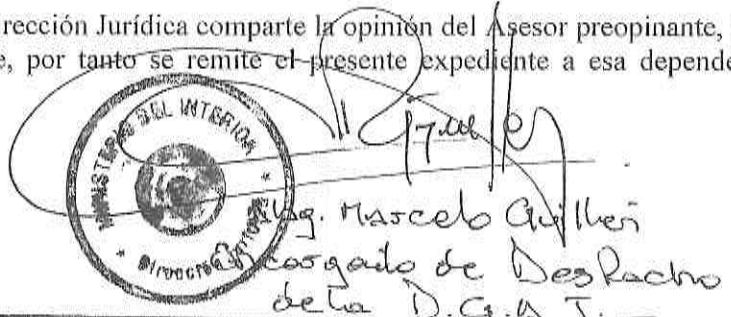 rección Jurídica comparte la opinión del Asesor preopinante,
e, por tanto se remite el presente expediente a esa depende
MINISTERIO DEL INTERIOR
Dirección
Abg. Marcelo
Encargado de Despacho
de la D.G.A.J.